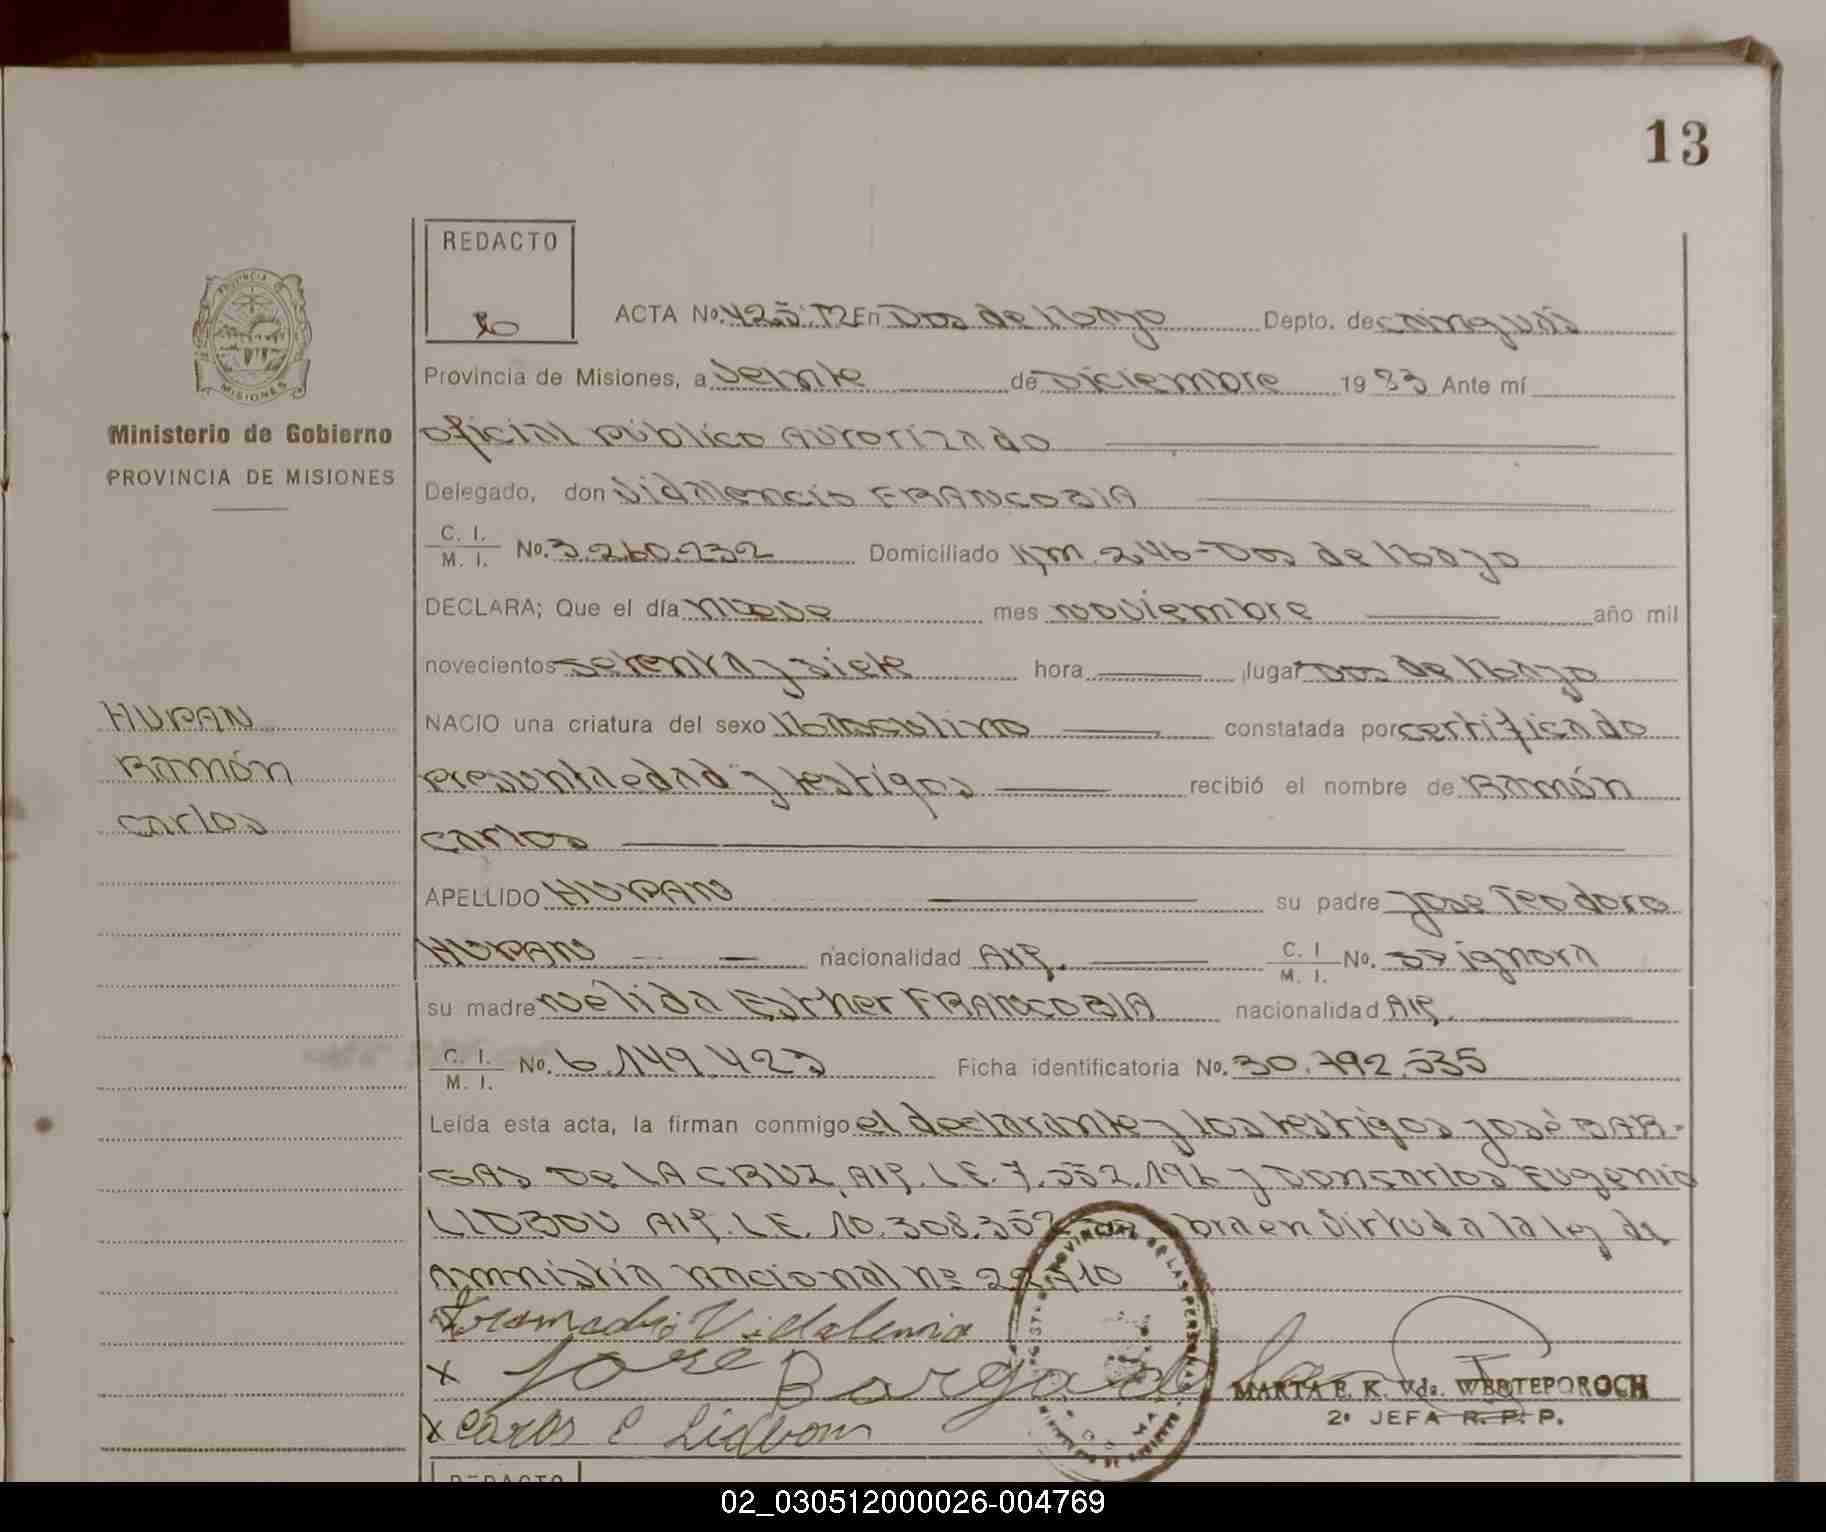 13
REDACTO
PROVINCIA DE
MISIONES
Ministerio de Gobierno
PROVINCIA DE MISIONES
ACTA No. 425 T2 En Dos de Mayo Depto. de Cainguás
Provincia de Misiones, a veinte de Diciembre 1983 Ante mí
oficial público autorizado
Delegado, don Vidalencio FRANCOBIA
C. I.
M. I. No. 3.260.232 Domiciliado Km. 246-Dos de Mayo
DECLARA; Que el día nueve mes noviembre año mil
novecientos setenta y siete hora lugar Dos de Mayo
HUPAN
Ramón
Carlos
NACIO una criatura del sexo Masculino constatada por certificado
presunta edad y testigos recibió el nombre de Ramón
Carlos
APELLIDO HUPAN su padre José Teodoro
HUPAN nacionalidad Arg. C. I
M. I. No. se ignora
su madre Nélida Esther FRANCOBIA nacionalidad Arg.
C. I.
M. I. No. 6.149.423 Ficha identificatoria No. 30.792.535
Leída esta acta, la firman conmigo el declarante y los testigos José BAR-
GAS De LA CRUZ, Arg. L.E. 7.552.196 y Don Carlos Eugenio
Arg. L.E. 10.308.35 en virtud a la ley de
amnistía nacional nº 22.410
Vidalencio
x Jose Bargas
x Carlos E
MARTA E. K. Vda. WERTEPOROCH
2º JEFA R. P. P.
REDACTO
02_030512000026-004769